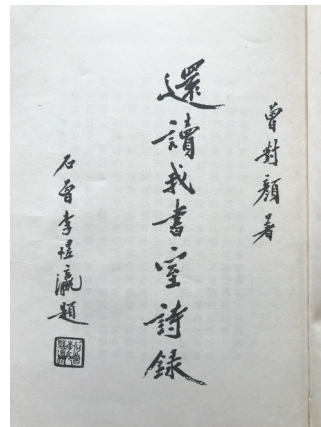 曾對顏著
還讀我書室詩録
石曾李煜瀛題